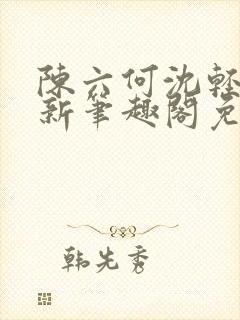 陳六何沈輕
新筆趣閣免
韩先秀